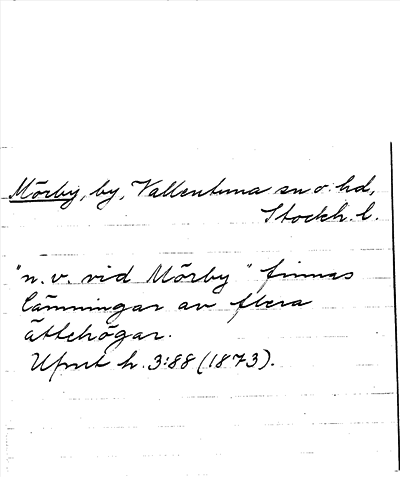 Mörby, by, Vallentuna sn o. hd,
Stockh. l.
"n. v. vid Mörby" finnas
lämningar av flera
ättehögar.
Upmt h. 3:88 (1873).